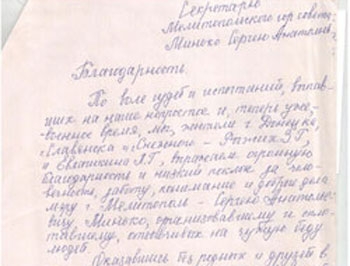 Секретарю
Мелитопольского гор совета
Минько Сергею Анатольев.
Благодарность.
По воле судеб и испытаний, выпав-
ших на наше непростое и, теперь уже,
военное время, мы, жители г. Донецка,
Славянска, Снежного -
и выражаем огромную
благодарность и низкий поклон за чело-
вечность, работу, понимание и добрые дела
мэру г. Мелитополь - Сергею Анатолье-
вичу, Минько, организовавшему и спло-
тившему, отозвчивых на чужую беду
людей.
Оказавшись без родных и друзей в